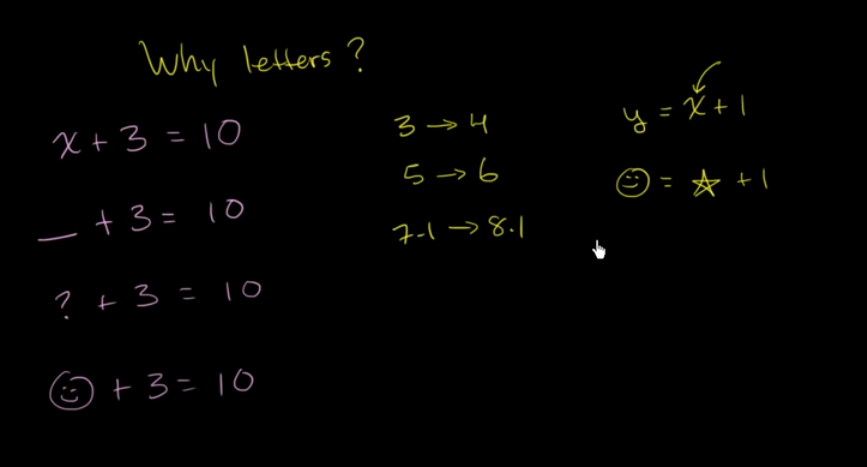 Why letters?
x + 3 = 10
_ + 3 = 10
? + 3 = 10
☺ + 3 = 10
3 → 4
5 → 6
7.1 → 8.1
y = x + 1
☺ = ☆ + 1